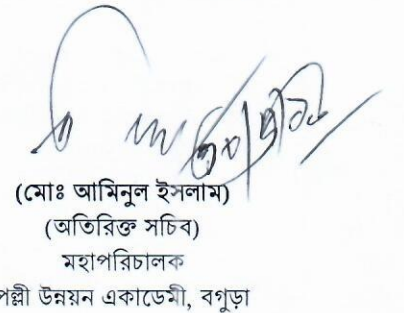 (মোঃ আমিনুল ইসলাম)
(অতিরিক্ত সচিব)
মহাপরিচালক
পল্লী উন্নয়ন একাডেমী, বগুড়া